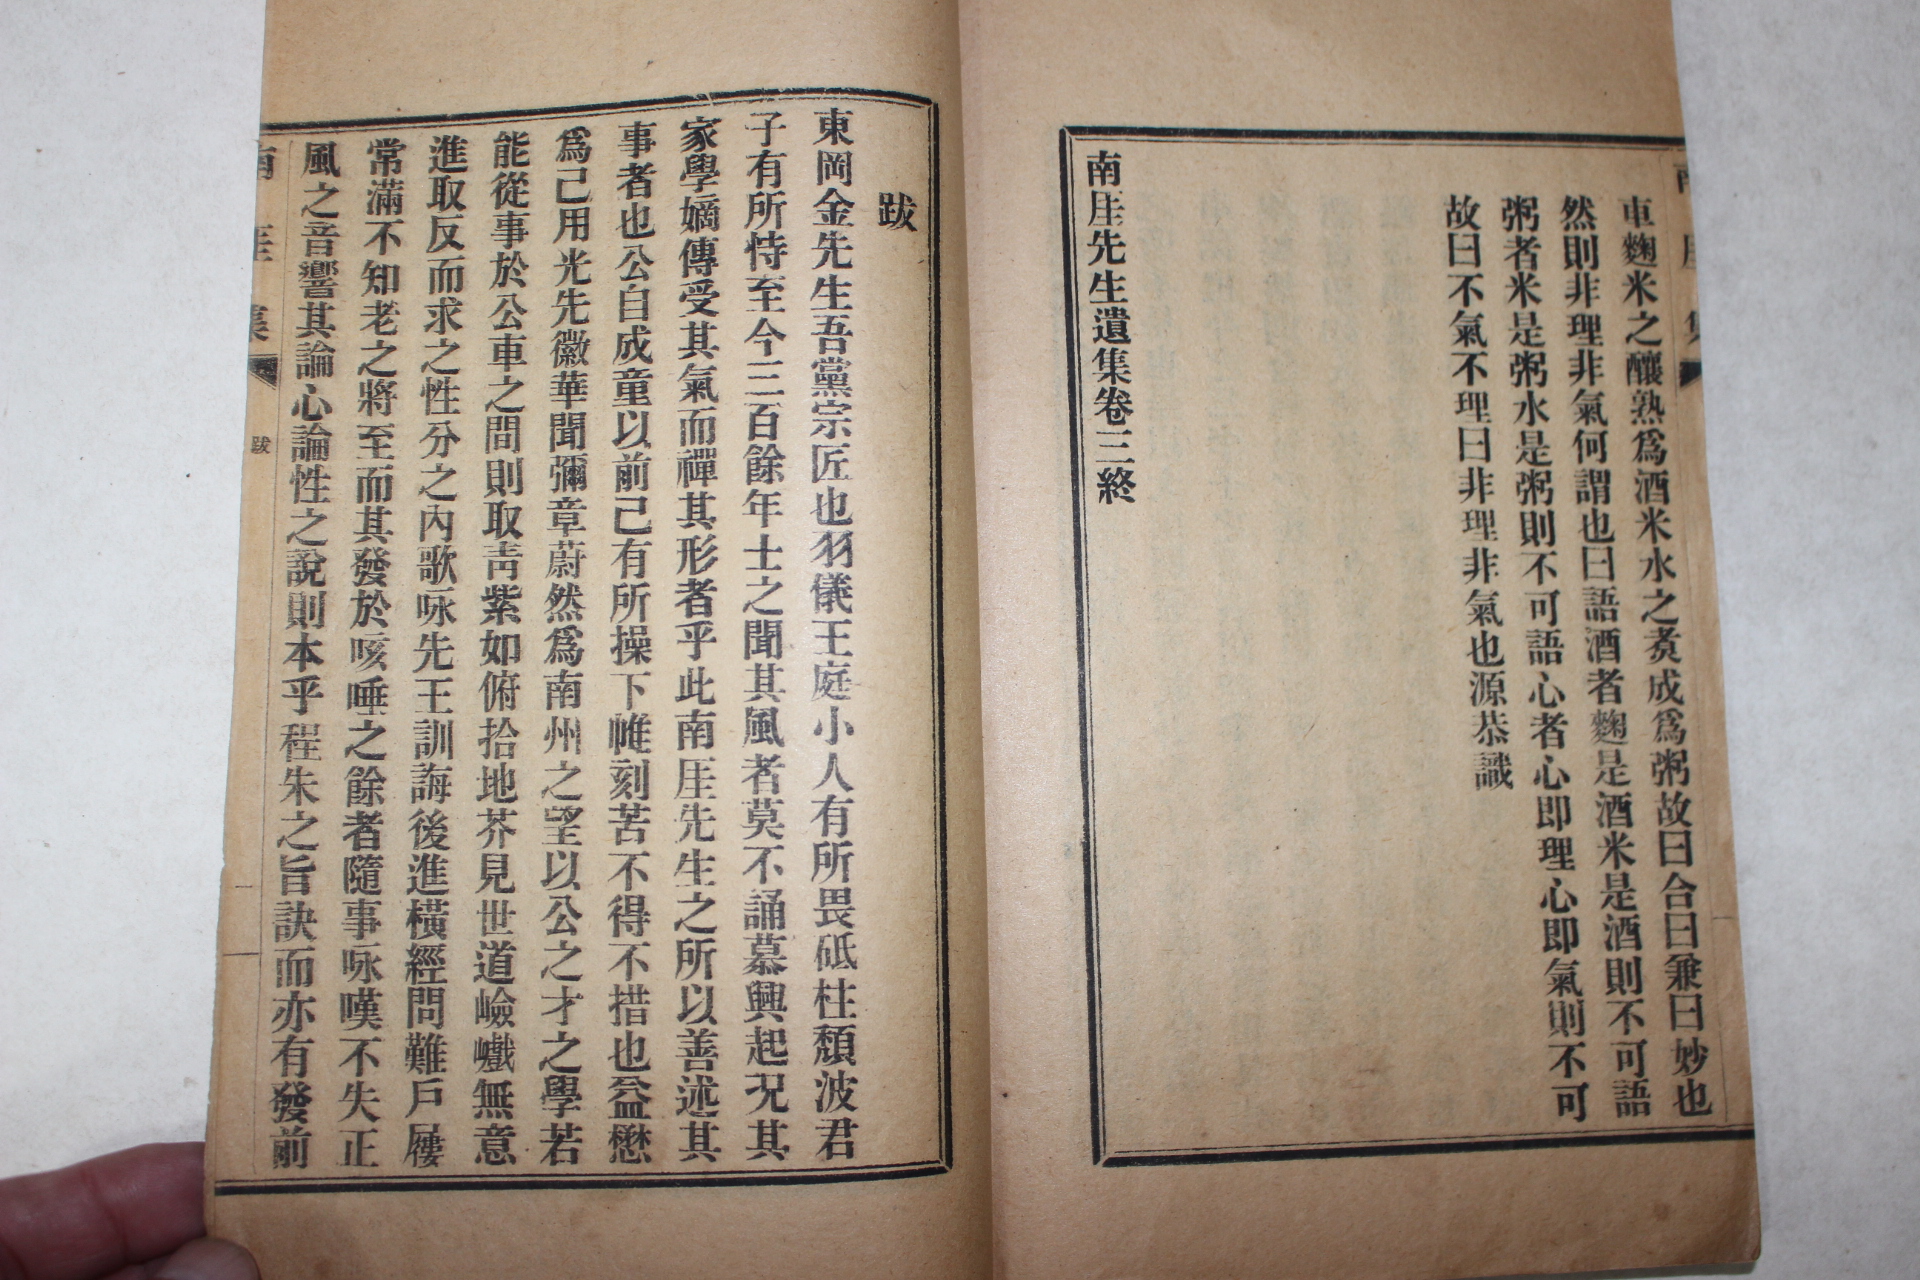 車麴米之釀熟爲酒米水之煑成爲粥故曰合曰兼曰妙也
然則非理非氣何謂也曰語酒者麴是酒米是酒則不可語
粥者米是粥水是粥則不可語心者心即理心即氣則不可
故曰不氣不理曰非理非氣也源恭識
南厓先生遺集卷三終
跋
東岡金先生吾黨宗匠也羽儀王庭小人有所畏砥柱頹波君
子有所恃至今三百餘年士之聞其風者莫不誦慕興起况其
家學嫡傳受其氣而禪其形者乎此南厓先生之所以善述其
事者也公自成童以前已有所操下帷刻苦不得不措也益懋
爲己用光先徽華聞彌章蔚然爲南州之望以公之才之學若
能從事於公車之間則取靑紫如俯拾地芥見世道嶮巇無意
進取反而求之性分之內歌咏先王訓誨後進橫經問難戶屨
常滿不知老之將至而其發於咳唾之餘者隨事咏嘆不失正
風之音響其論心論性之說則本乎程朱之旨訣而亦有發前
南厓集
跋
一